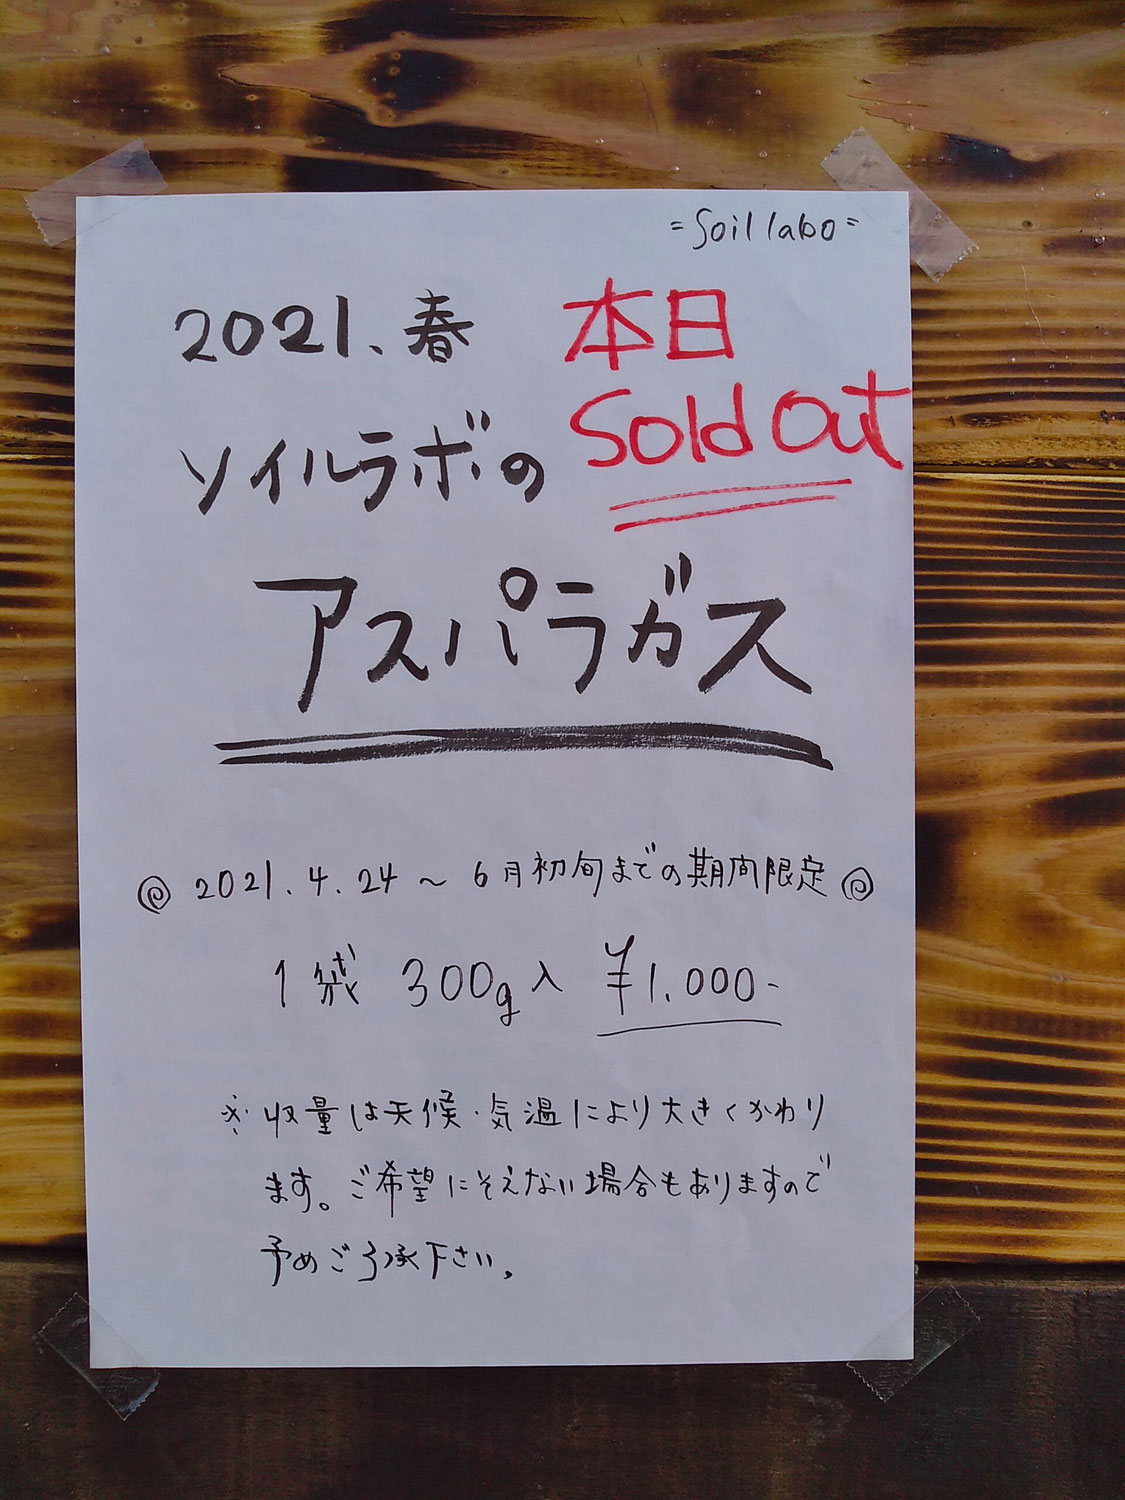 =Soil labo=
2021.春
本日
Sold Out
ソイルラボの
アスパラガス
2021.4.24～6月初旬までの期間限定
1袋 300g入 ¥1.000-
※収量は天候・気温により大きくかわり
ます。ご希望にそえない場合もありますので
予めご了承下さい。